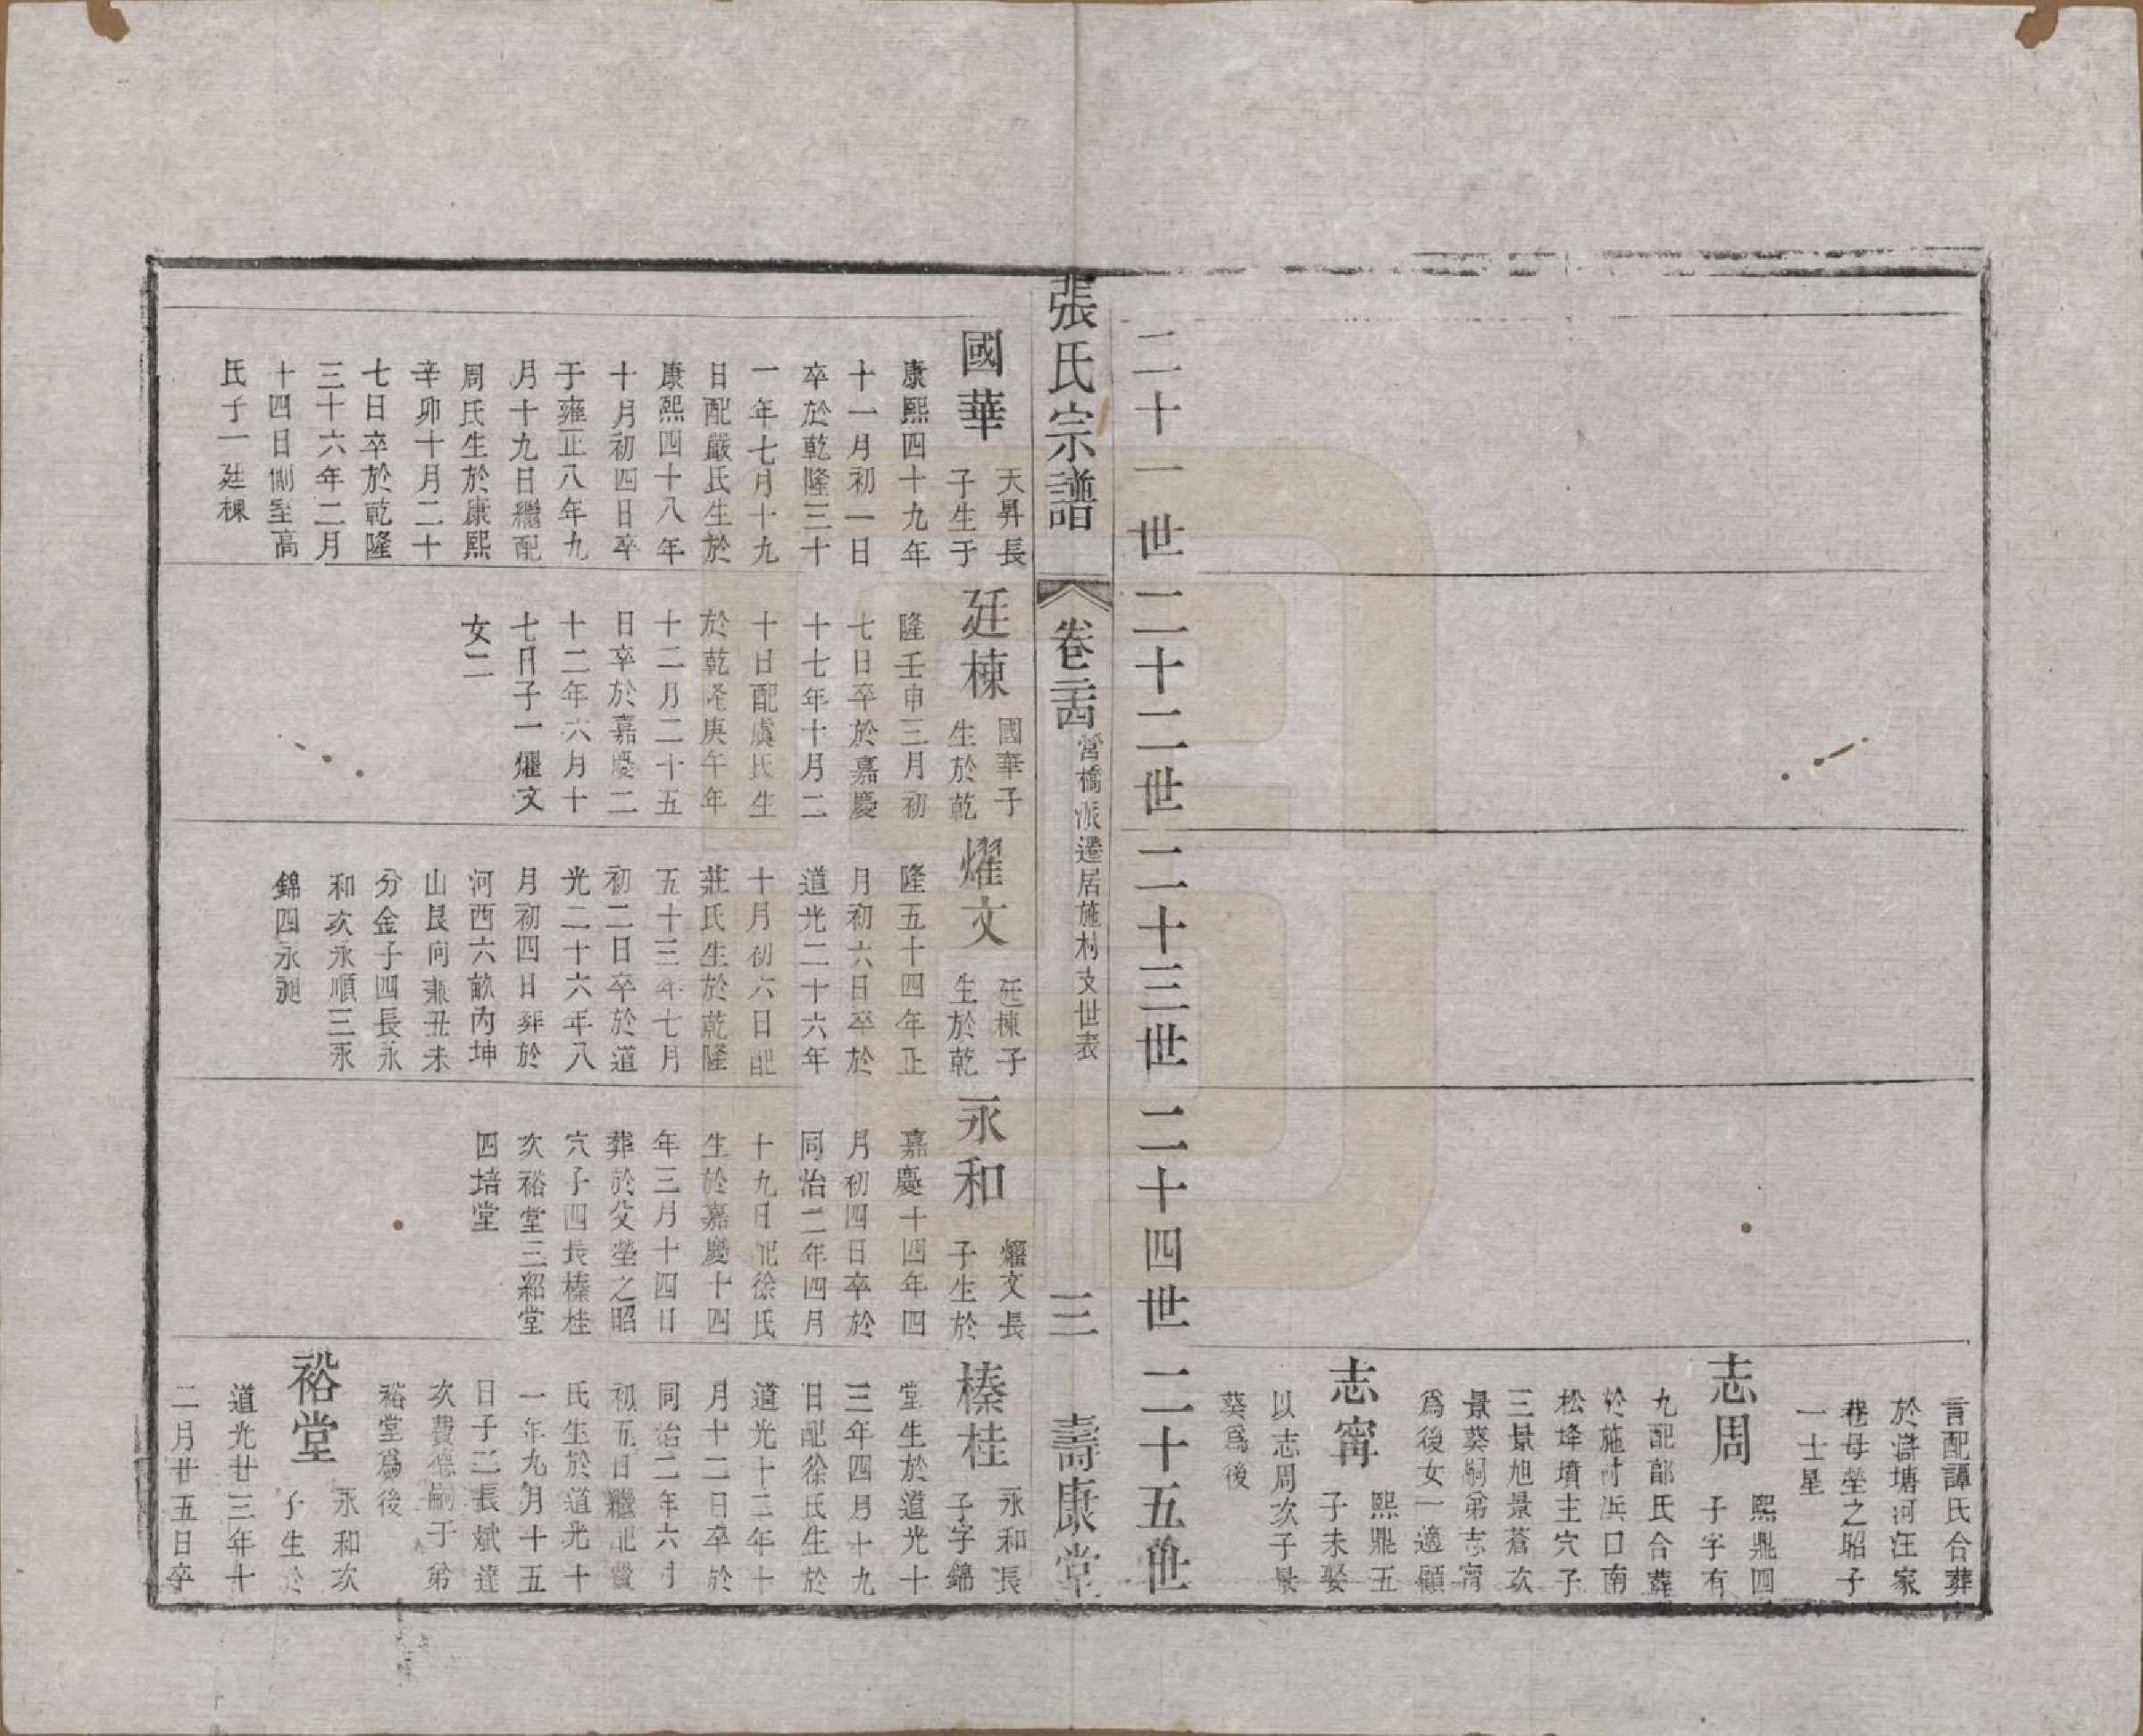 言配譚氏合葬
於溍塘河汪家
巷母塋之昭子
一士星
志周
熙鼎四
子字有
九配部氏合葬
於施村浜口南
松埄墳主穴子
三景旭景蒼次
景葵嗣弟志甯
爲後女一適顧
志甯
熙鼎五
子未娶
以志周次子景
葵爲後
二十一世
二十二世
二十三世
二十四世
二十五世
張氏宗譜
卷二十四
營橋派遷居施村支世表
三
壽康堂
國華
天昇長
子生于
康熙四十九年
十一月初一日
卒於乾隆三十
一年七月十九
日配嚴氏生於
康熙四十八年
十月初四日卒
于雍正八年九
月十九日繼配
周氏生於康熙
辛卯十月二十
七日卒於乾隆
三十六年二月
十四日側室高
氏子一廷棟
廷棟
國華子
生於乾
隆壬申三月初
七日卒於嘉慶
十七年十月二
十日配虞氏生
於乾隆庚午年
十二月二十五
日卒於嘉慶二
十二年六月十
七日子一燿文
女二
燿文
廷棟子
生於乾
隆五十四年正
月初六日卒於
道光二十六年
十月初六日配
莊氏生於乾隆
五十三年七月
初二日卒於道
光二十六年八
月初四日葬於
河西六畝內坤
山艮向兼丑未
分金子四長永
和次永順三永
錦四永昶
永和
燿文長
子生於
嘉慶十四年四
月初四日卒於
同治二年四月
十九日配徐氏
生於嘉慶十四
年三月十四日
葬於父塋之昭
穴子四長榛桂
次裕堂三紹堂
四培堂
榛桂
永和長
子字錦
堂生於道光十
三年四月十九
日配徐氏生於
道光十二年十
月十二日卒於
同治二年六月
初五日繼配費
氏生於道光十
一年九月十五
日子二長斌達
次費德嗣于弟
裕堂爲後
裕堂
永和次
子生於
道光廿三年十
二月廿五日卒